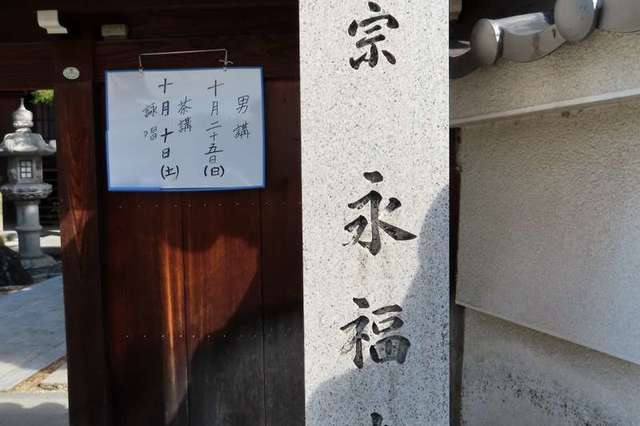 宗永福
男講
十月二十五日(日)
茶講
十月十日(土)
詠唱